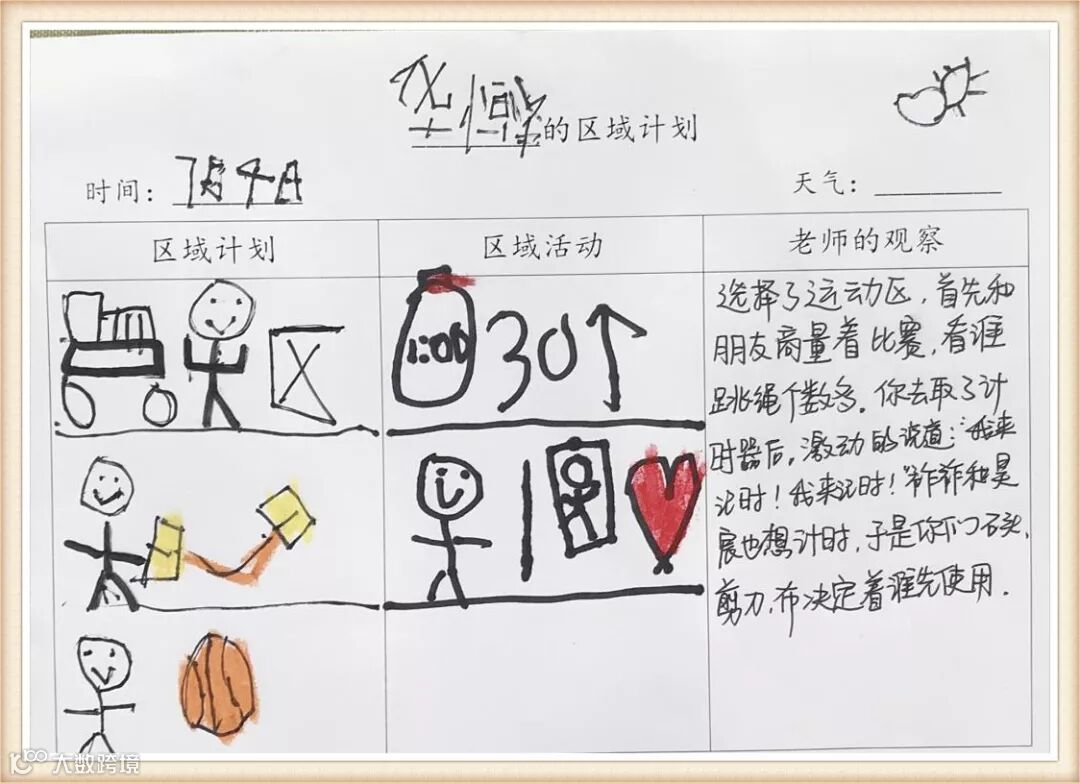 的区域计划
时间：7月4日
天气：
区域计划
区域活动
老师的观察
1:00
30个
选择了运动区，首先和
朋友商量着比赛，看谁
跳绳个数多。你去取了计
时器后，激动的说道：“我来
计时！我来计时！”祚祚和昊
宸也想计时，于是你们石头、
剪刀、布决定着谁先使用.
大数跨境